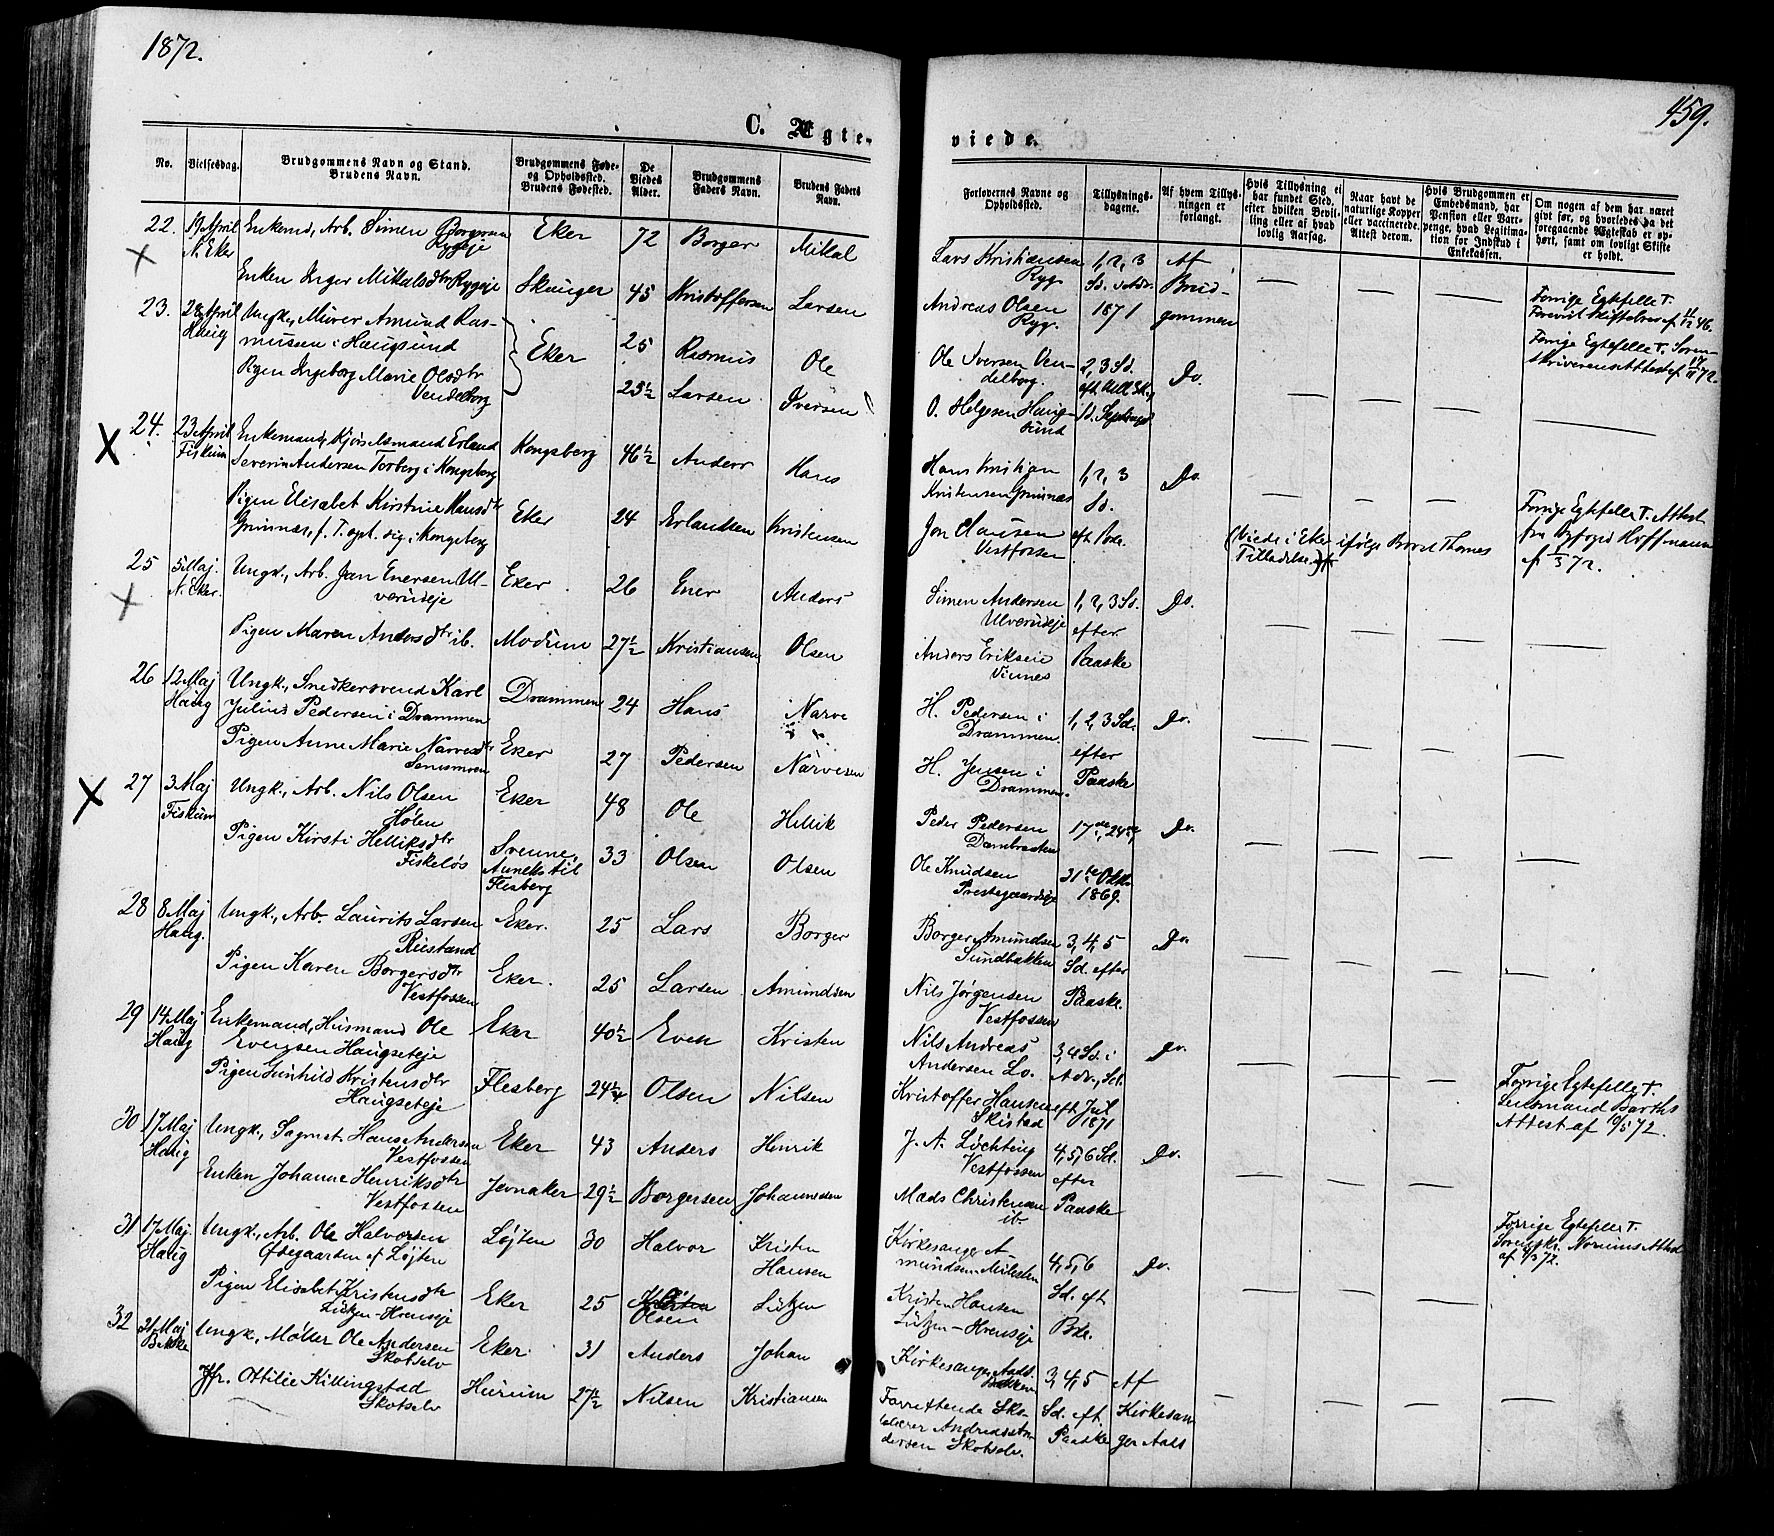 1872.
459.
C. Ægte-
viede.
No.
Vielsesdag.
Brudgommens Navn og Stand.
Brudens Navn.
Brudgommens Føde-
og Opholdssted.
Brudens Fødested.
De
Viedes
Alder.
Brudgommens
Faders Navn.
Brudens Faders
Navn.
Forlovernes Navne og
Opholdssted.
Tillysnings-
dagene.
Af hvem Tillys-
ningen er
forlangt.
Hvis Tillysning ei
har fundet Sted,
efter hvilken Bevil-
ling eller af hvad
lovlig Aarsag.
Naar havt de
naturlige Kopper
eller vaccinerede.
Attest derom.
Hvis Brudgommen er
Embedsmand, har
Pension eller Vart-
penge, hvad Legitima-
tion for Indskud i
Enkekassen.
Om nogen af dem har været
givt før, og hvorledes da det
foregaaende Ægteskab er op-
hørt, samt om lovligt Skifte
er holdt.
22. 19 April Enkemd, Arb. Simen Borgersen Eker 72 Borger Mikal
N. Eker Ryggeje
Enken Inger Mikalsdtr Ryggeje Skauger 45 Kristoffersen Larsen
Lars Kristiansen 1, 2, 3 Af
Ryg. Sd. i Adv. Brud-
Andreas Olsen 1871 gommen
Ryg.
Forrige Egtefelle †.
Forevist Skiftebrev af 46.
23. 28 April Ungk, Murer Amund Ras- Eker 25 Rasmus Ole
Haug mussen i Haugsund
Pigen Ingeborg Marie Olsdtr 25½ Larsen Iversen
Vendelborg
Ole Iversen Ven- 2, 3 Sd. Do.
delborg.
O. Helgesen Haug-
sund
Forrige Egtefelle †. Soren-
skriverens Attest af 72.
24. 23 April Enkemand, Erland Kongsberg 46½ Anders Hans
Fiskum Severin Andersen Torberg i Kongsberg
Pigen Elisabet Kirstine Hansdtr Eker 24 Erlandsen Kristensen
Grinnæs, f. T. opt. sig i Kongsberg
Hans Kristjan 1, 2, 3 Do.
Kristensen Grinnæs Sd.
Jon Clausen
Vestfossen
(Viede i Eker ifølge Brev Thomes
Tilladelse)
Forrige Egtefelle †. Attest
fra Byfoged Hoffmann
af 1/3 72.
25 5 Maj. Ungk., Arb. Jan Enersen Ul- Eker 26 Ener Anders
N. Eker. verudeje
Pigen Maren Andersdtr ib. Modum 27½ Kristiansen Olsen
Simen Andersen 1, 2, 3 Sd. Do.
Ulverudeje efter
Anders Eriksen Paaske
Vinnes
26 12 Maj Ungk., Snedkersvend Karl Drammen 24 Hans Narve
Haug Julius Pedersen i Drammen
Pigen Anne Marie Narvesdtr Eker 27 Pedersen Narvesen
H. Pedersen i 1, 2, 3 Sd. Do.
Drammen. efter
H. Jensen i Paaske
Drammen.
27 3 Maj Ungk., Arb. Nils Olsen Eker 48 Ole Hellik
Fiskum Hølen
Pigen Kirsti Helliksdtr Svenne, 33 Olsen Olsen
Fiskeløs Anneks til
Flesberg
Peder Pedersen 17de, 24de Do.
Dambraaten
Ole Knudsen 31te Oktbr
Prestegaardseje 1869.
28 8 Maj Ungk., Arb. Laurits Larsen Eker. 25 Lars Borger
Haug. Rustand
Pigen Karen Borgersdtr Eker. 25 Larsen Amundsen
Vestfossen
Borger Amundsen 3, 4, 5 Do.
Sundbakken Sd. efter
Nils Jørgensen Paaske.
Vestfossen
29 14 Maj Enkemand, Husmand Ole Eker 40½ Even Kristen
Haug Evensen Haugseteje
Pigen Gunhild Kristensdtr Flesberg 24½ Olsen Nilsen
Haugseteje
Nils Andreas 3, 4 Sd. i Do.
Andersen Lo. Adv., Sd.
Kristoffer Hansen eft. Jul
Skistad 1871
Forrige Egtefelle †.
Lensmand Barths
Attest af 10/5 72.
30 17 Maj Ungk., Sagmst. Hans Andersen Eker 43 Anders Henrik
Haug Vestfossen
Enken Johanne Henriksdtr Jevnaker 29½ Borgersen Johannesen
Vestfossen
J. A. Løchting 4, 5, 6 Sd. Do.
Vestfossen efter
Mads Christensen Paaske
ib.
Forrige Egtefelle †.
Sorenskr. Attest
af 72.
31 17 Maj. Ungk., Arb. Ole Halvorsen Løjten 30 Halvor Kristen
Haug Ødegaarden af Løjten Hansen
Pigen Elisabet Kristensdtr Eker 25 Olsen Lützen
Lützen-Hvenseje
Kirkesanger A- 4, 5, 6 Do.
mundsen Milesten
Kristen Hansen Sd. eft
Lützen-Hvenseje Pske.
32 21 Maj Ungk., Møller Ole Andersen Eker. 31 Anders Johan
Bakke Skotselv
Jfr. Ottilie Killingstad Hurum 27½ Nilsen Kristiansen
Skotselv
Kirkesanger Aads 3, 4, 5 Af
Bakken
Forrettende Sko- Sd. eft. Kirkesan-
lelærer Andreas An- Paaske ger Aads
dersen Skotselv.